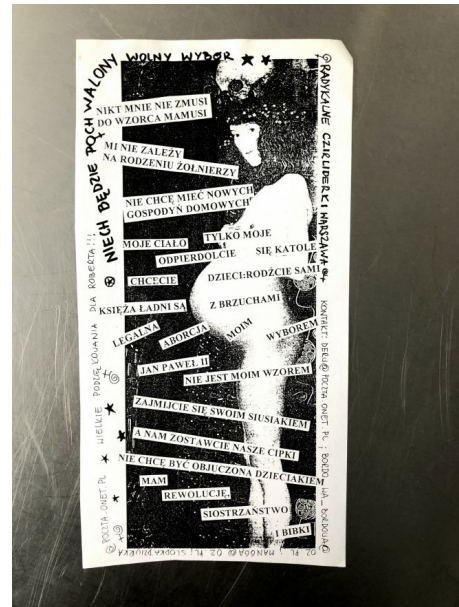 NIECH BĘDZIE POCHWALONY WOLNY WYBÓR
NIKT MNIE NIE ZMUSI
DO WZORCA MAMUSI
MI NIE ZALEŻY
NA RODZENIU ŻOŁNIERZY
NIE CHCĘ MIEĆ NOWYCH
GOSPODYŃ DOMOWYCH
MOJE CIAŁO TYLKO MOJE
ODPIERDOLCIE SIĘ KATOLE
CHCECIE DZIECI:RODŹCIE SAMI
KSIĘŻA ŁADNI SĄ Z BRZUCHAMI
LEGALNA ABORCJA MOIM WYBOREM
JAN PAWEŁ II
NIE JEST MOIM WZOREM
ZAJMIJCIE SIĘ SWOIM SIUSIAKIEM
A NAM ZOSTAWCIE NASZE CIPKI
NIE CHCĘ BYĆ OBJUCZONA DZIECIAKIEM
MAM REWOLUCJĘ,
SIOSTRZAŃSTWO
I BIBKI
RADYKALNE CZIRLIDERKI WARSZAWA
KONTAKT: @POCZTA.ONET.PL ; @O2.PL ; MANGGA@O2.PL ; @POCZTA.ONET.PL
WIELKIE PODZIĘKOWANIA DLA ROBERTA!!!